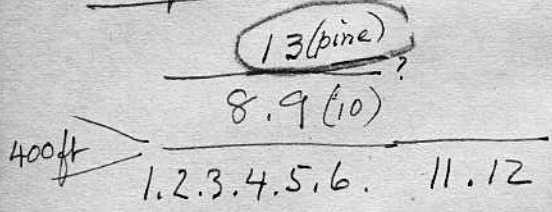 13 (pine)
?
8.9 (10)
400ft
1.2.3.4.5.6. 11.12